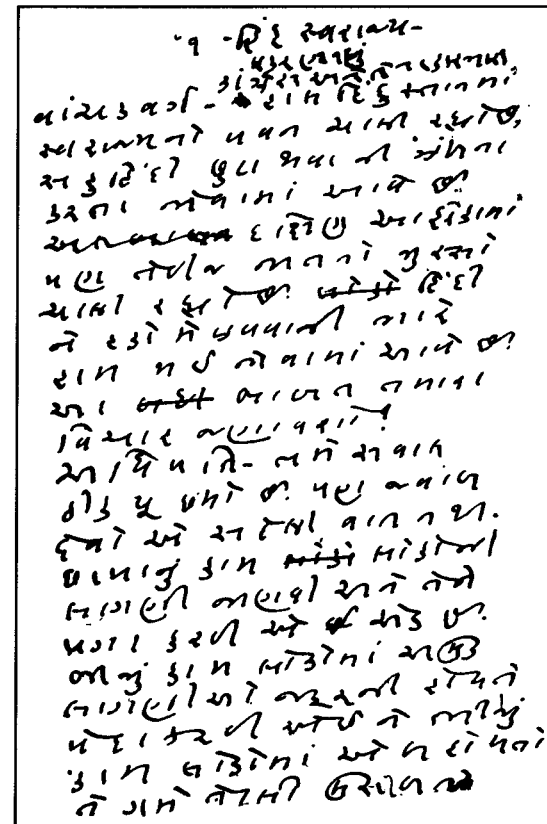 ૧ - હિંદ સ્વરાજ્ય -
કોંગ્રેસ અને તેના કામનાર
વાંચકવર્ગ - હાલ હિંદુસ્તાનમાં
સ્વરાજ્યનો પવન ચાલી રહ્યો છે,
સહુ હિંદી છુટા થવાની ઝંખના
કરતા જોવામાં આવે છે.
દક્ષિણ આફ્રીકામાં
પણ તેવીજ જાતનો જુસ્સો
ચાલી રહ્યો છે. હિંદી
ને હકો મેળવવાની ભારે
હામ થઈ જોવામાં આવે છે.
આ બાબત તમારા
વિચાર જણાવશો?
અધિપતિ - તમે સવાલ
ઠીક પૂછ્યો છે. પણ જવાબ
દેવો એ સહેલી વાત નથી.
છાપાનું કામ લોકોની
લાગણી જાણવી અને તેને
પ્રગટ કરવી એ એક છે.
બીજું કામ લોકોમાં અમુક
લાગણીઓ જરૂરની હોય તે
પેદા કરવી એ છે ને ત્રીજું
કામ લોકોમાં એબ હોય તો
તે ગમે તેટલી મુસીબત